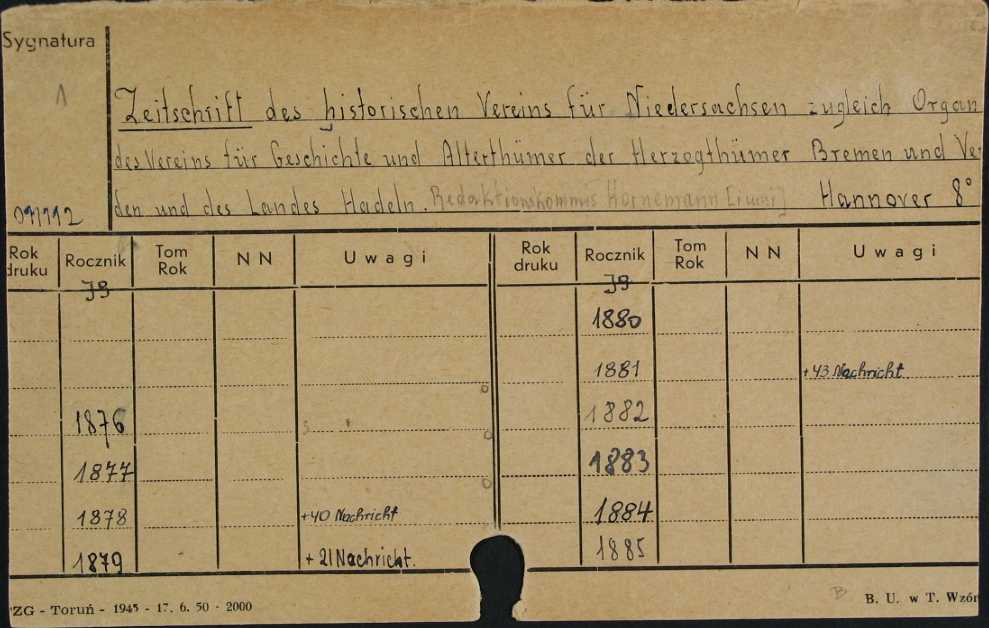 Sygnatura
1
Zeitschrift des historischen Vereins für Niedersachsen zugleich Organ
des Vereins für Geschichte und Alterthümer der Herzogthümer Bremen und Ve-
den und des Landes Hadeln. Redaktionskommis Hornemann [i inni] Hannover 8°
Rok druku Rocznik Tom Rok NN Uwagi Rok druku Rocznik Tom Rok NN Uwagi
Jg Jg
1880
1881 +43 Nachricht
1876 1882
1877 1883
1878 +40 Nachricht 1884
1879 + 21 Nachricht. 1885
PZG - Toruń - 1945 - 17. 6. 50 - 2000 B B. U. w T. Wzór